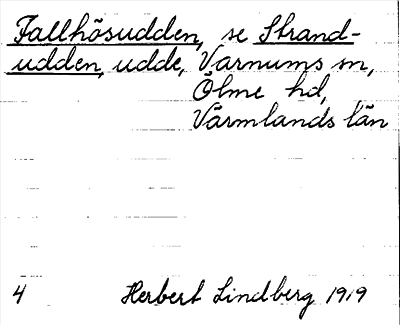 Fallhösudden, se Strand-
udden, udde, Varnums sn,
Ölme hd,
Värmlands län
4 Herbert Lindberg 1919